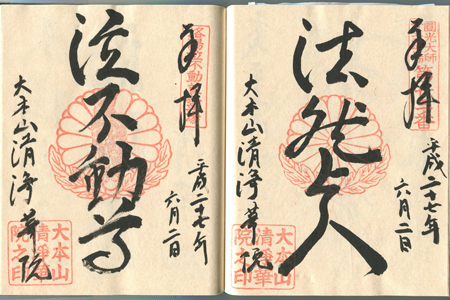 奉拝
平成二十七年
六月二日
法然上人
大本山清浄華院
圓光大師
大本山
清浄華
院之印
奉拝
平成二十七年
六月二日
泣不動尊
大本山清浄華院
大本山
清浄華
院之印